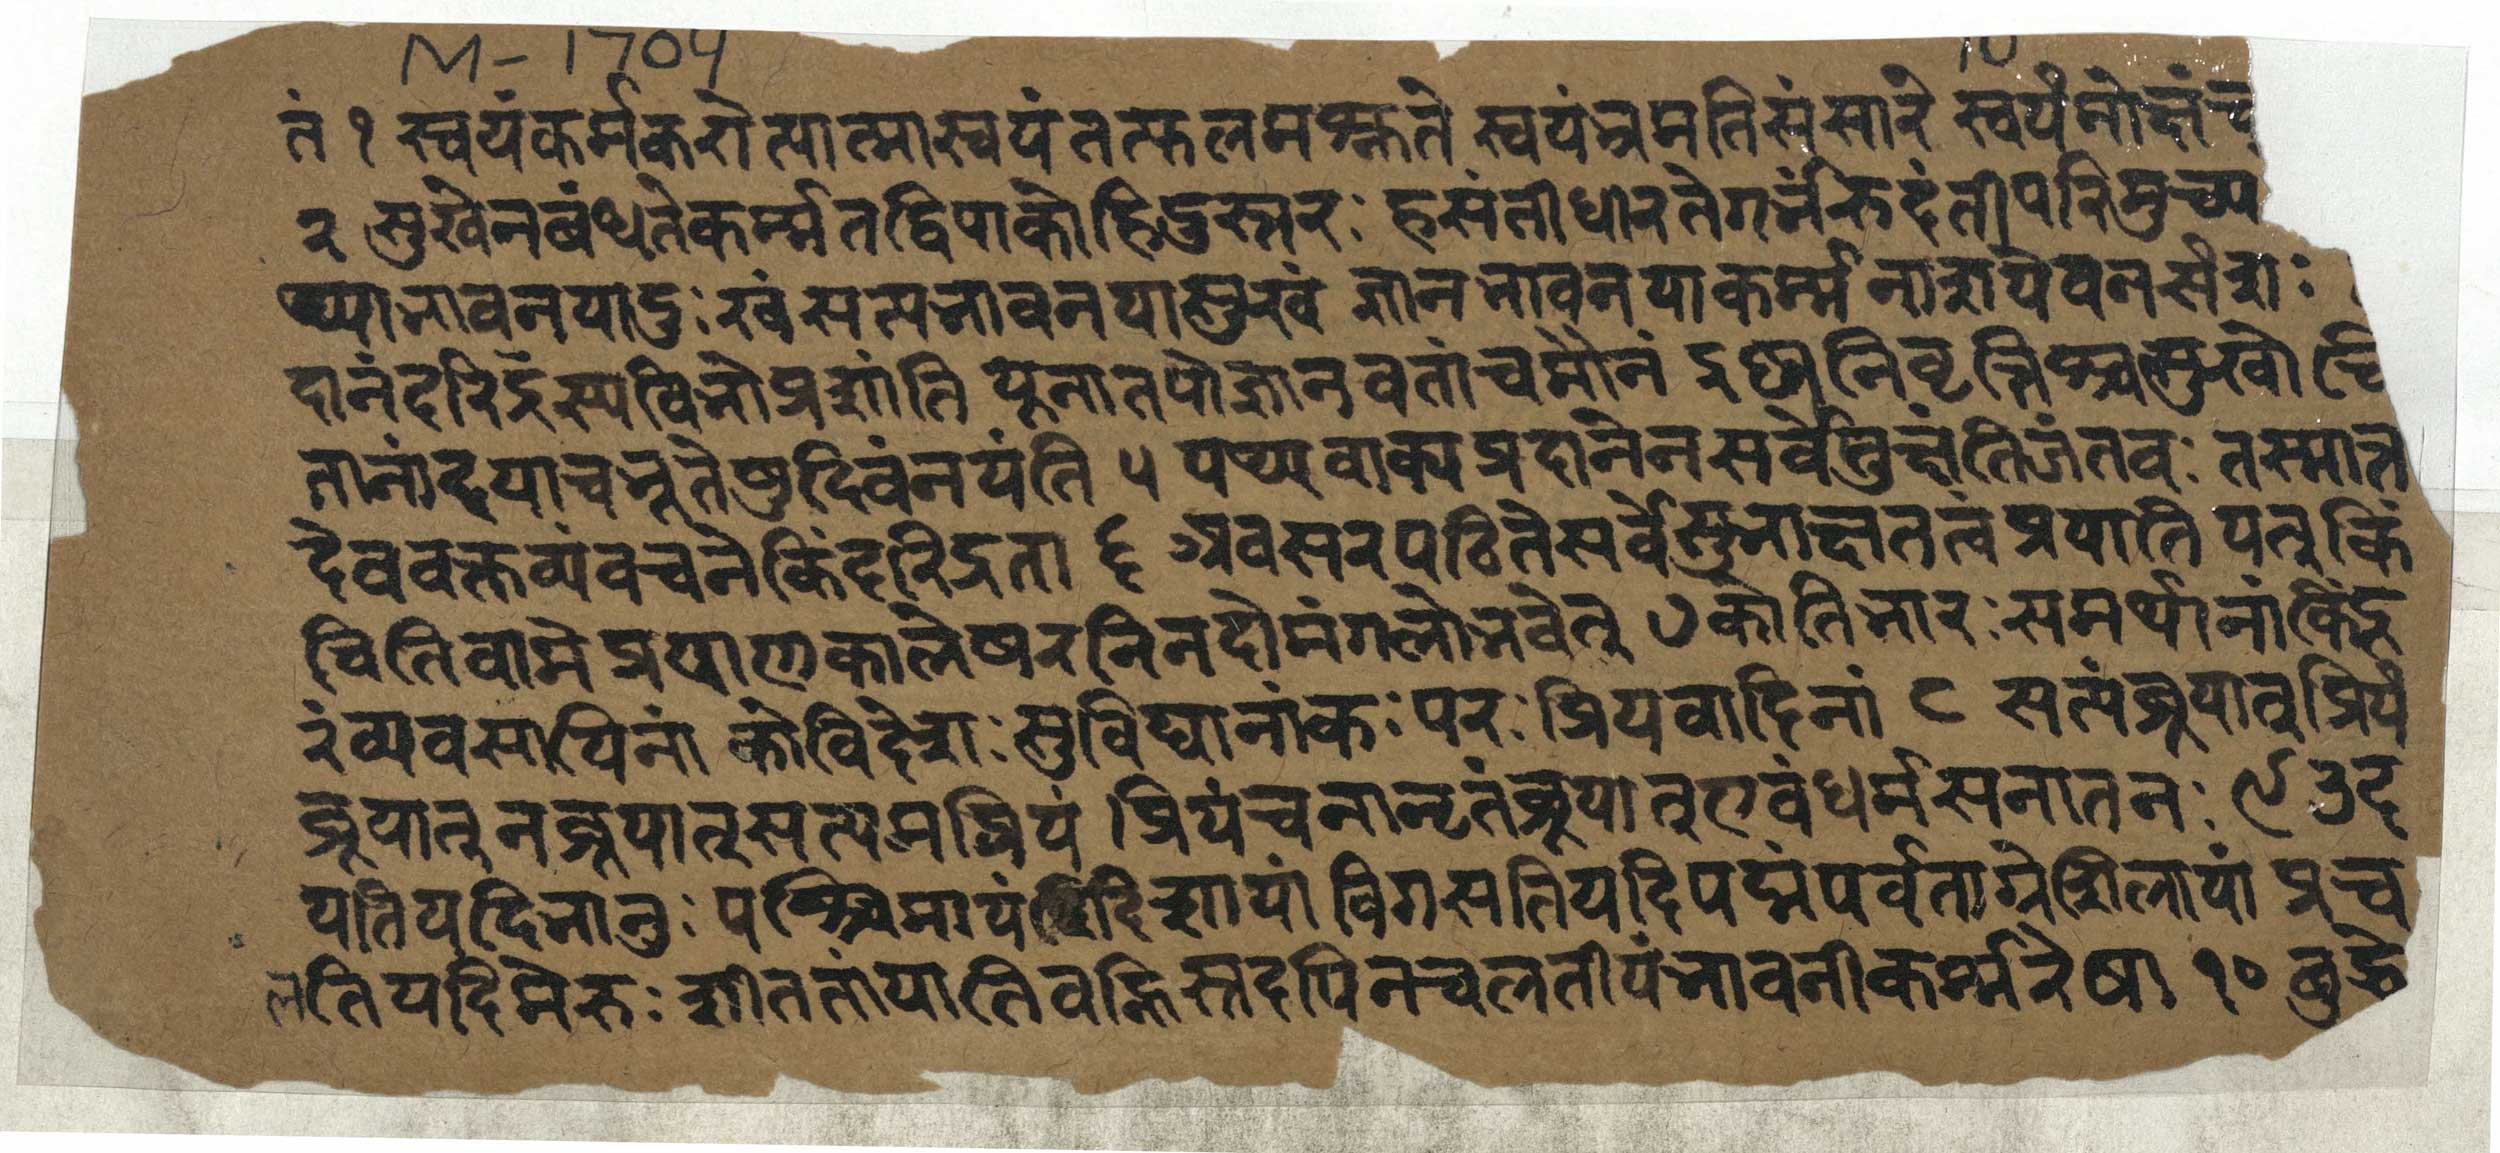 M-1704
10
तं १ स्वयंकर्मकरोत्यात्मास्वयंतत्फलमश्नुते स्वयंभ्रमतिसंसारे स्वयंमोक्षंच
२ सुखेनबंध्यतेकर्म्मतद्विपाकोहिदुस्तरः हसंतीधारतेगर्भंरुदंतीपरिमुच्य
थ्याभावनयादुःखंसत्यभावनयासुखं ज्ञानभावनयाकर्म्मनाशयेवनसंशः
दानंदरिद्रस्यविभोप्रशांति यूनातपोज्ञानवतांचमौनं इछानिवृत्तिश्चसुखोचि
तानांदयाचभूतेषुदिवंनयंति ५ पथ्यवाक्यप्रदानेनसर्वेतुक्षंतिजंतवः तस्मात्त
देववक्तव्यंवचनेकिंदरिद्रता ६ अवसरपठितेसर्वेसुभाक्षतत्वंप्रयाति यत् किं
चितिवाग्मेप्रयाणकालेषरनिनदोमंगलोभवेत् ७ कोतिभारःसमर्थानांकिंदू
रंव्यवसायिनां कोविदेशःसुविद्यानांकःपरःप्रियवादिनां ८ सत्यंब्रूयात्प्रियं
ब्रूयात् नब्रूयात्सत्यमप्रियं प्रियंचनानृतंब्रूयात् एवंधर्मसनातनः ९ उद
यतियदिभानुः पश्चिमायंदिशायां विगसतियदिपद्मंपर्वताग्रेशिलायां प्रच
लतियदिमेरुः शीततांयातिवह्निस्तदपिनचलतीयंभावनीकर्म्मरेषा १० बुद्धे